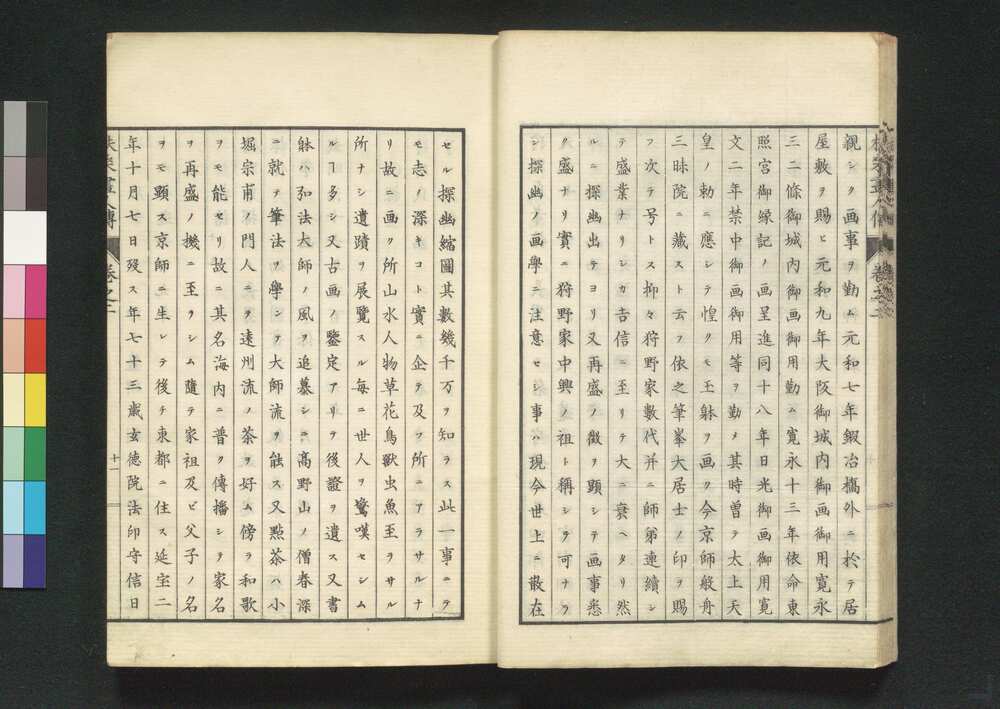 親シク画事ヲ勤ム元和七年鍜冶橋外ニ於テ居
屋敷ヲ賜ヒ元和九年大阪御城内御画御用寛永
三二條御城内御画御用勤ム寛永十三年依命東
照宮御縁記ノ画呈進同十八年日光御画御用寛
文二年禁中御画御用等ヲ勤メ其時曽テ太上天
皇ノ勅ニ應シテ惶クモ玉躰ヲ画ク今京師般舟
三昧院ニ藏スト云フ依之筆峯大居士ノ印ヲ賜
フ次テ号トス抑々狩野家數代并ニ師弟連續シ
テ盛業ナリシカ𠮷信ニ至リテ大ニ衰ヘタリ然
ルニ探幽出テヨリ又再盛ノ徴ヲ顕シテ画事悉
ク盛ナリ實ニ狩野家中興ノ祖ト稱シテ可ナラ
ン探幽ノ画學ニ注意セシ事ハ現今世上ニ散在
セル探幽縮圖其數幾千万ヲ知ラス此一事ニテ
モ志ノ深キコト實ニ企テ及フ所ニアラサルナ
リ故ニ画ク所山水人物草花鳥獸虫魚至ラサル
所ナシ遺蹟ヲ展覽スル毎ニ世人ヲ驚嘆セシム
ルヿ多シ又古画ノ鑒定アリテ後證ヲ遺ス又書
躰ハ弘法大師ノ風ヲ追慕シニ高野山ノ僧春深
ニ就テ筆法ヲ學シシア大師流ヲ能ス又點茶ハ小
堀宗甫ノ門人ニテ遠州流ノ茶ヲ好ム傍ラ和歌
ヲモ能セリ故ニ其名海内ニ普ク傳播シテ家名
ヲ再盛ノ機ニ至ラシム隨テ家祖及ビ父子ノ名
ヲモ顕ス京師ニ生レテ後チ東都ニ住ス延宝二
年十月七日歿ス年七十三歳玄徳院法印守信日
卷之二
十一